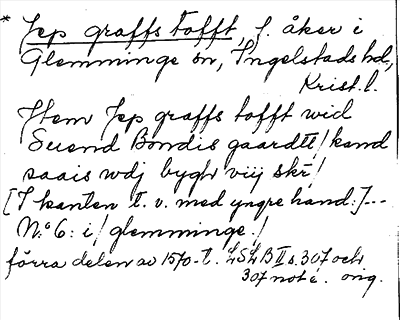 * Jep graffs tofft, f. åker i
Glemminge sn, Ingelstads hd,
Krist. l.
Item Jep graffs tofft wid
Suend Bondis gaardtt / kand
saais wdj bygh viij skr /
[I kanten t. v. med yngre hand:]---
N:o 6: i / glemminge. /
förra delen av 1570-t. LSLB II s. 307 och
307 not é. orig.